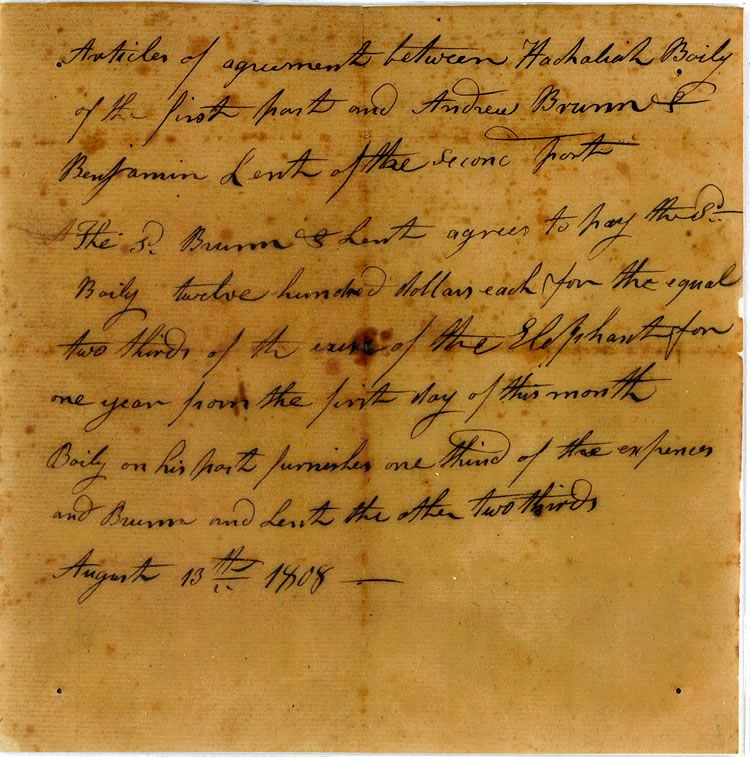 Articles of agreement between Hachaliah Baily
of the first part and Andrew Brunn &
Benjamin Lent of the second part
The Sd. Brunn & Lent agrees to pay the Sd.
Baily twelve hundred dollars each for the equal
two thirds of the of the Elephant for
one year from the first day of this month
Baily on his part furnishes one third of the expences
and Brunn and Lent the other two thirds
August 13th 1808 —